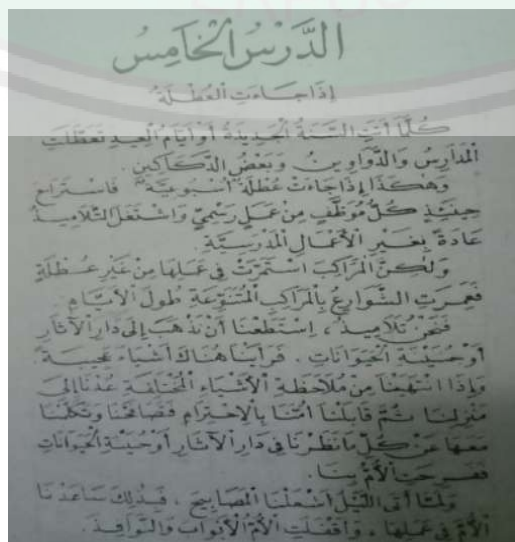 الدَّرْسُ الْخَامِسُ
إِذَا جَاءَتِ الْعُطْلَةُ
كُلَّمَا أَتَتِ السَّنَةُ الْجَدِيدَةُ أَوْ أَيَّامُ الْعِيدِ تَعَطَّلَتِ
الْمَدَارِسُ وَالدَّوَاوِينُ وَبَعْضُ الدَّكَاكِينِ.
وَهٰكَذَا إِذَا جَاءَتْ عُطْلَةٌ أُسْبُوعِيَّةٌ فَاسْتَرَاحَ
حِينَئِذٍ كُلُّ مُوَظَّفٍ مِنْ عَمَلٍ رَسْمِيٍّ وَاشْتَغَلَ التَّلَامِيذُ
عَادَةً بِغَيْرِ الْأَعْمَالِ الْمَدْرَسِيَّةِ.
وَلٰكِنَّ الْمَرَاكِبَ اسْتَمَرَّتْ فِي عَمَلِهَا مِنْ غَيْرِ عُطْلَةٍ
فَعَمِرَتِ الشَّوَارِعُ بِالْمَرَاكِبِ الْمُتَنَوِّعَةِ طُولَ الْأَيَّامِ.
فَنَحْنُ تَلَامِيذُ، اِسْتَطَعْنَا أَنْ نَذْهَبَ إِلَى دَارِ الْآثَارِ
أَوْ حُنَيْنَةِ الْحَيَوَانَاتِ. فَرَأَيْنَا هُنَاكَ أَشْيَاءَ عَجِيبَةً.
وَإِذَا انْتَهَيْنَا مِنْ مُلَاحَظَةِ الْأَشْيَاءِ الْمُخْتَلِفَةِ عُدْنَا إِلَى
مَنْزِلِنَا ثُمَّ قَابَلْنَا أُمَّنَا بِالْاِحْتِرَامِ فَصَافَحْنَا وَتَكَلَّمْنَا
مَعَهَا عَنْ كُلِّ مَا نَظَرْنَا فِي دَارِ الْآثَارِ أَوْ حُنَيْنَةِ الْحَيَوَانَاتِ
فَفَرِحَتِ الْأُمُّ بِنَا.
وَلَمَّا أَتَى اللَّيْلُ أَشْعَلْنَا الْمَصَابِيحَ، فَبِذٰلِكَ سَاعَدْنَا
الْأُمَّ فِي عَمَلِهَا، وَأَقْفَلَتِ الْأُمُّ الْأَبْوَابَ وَالنَّوَافِذَ.